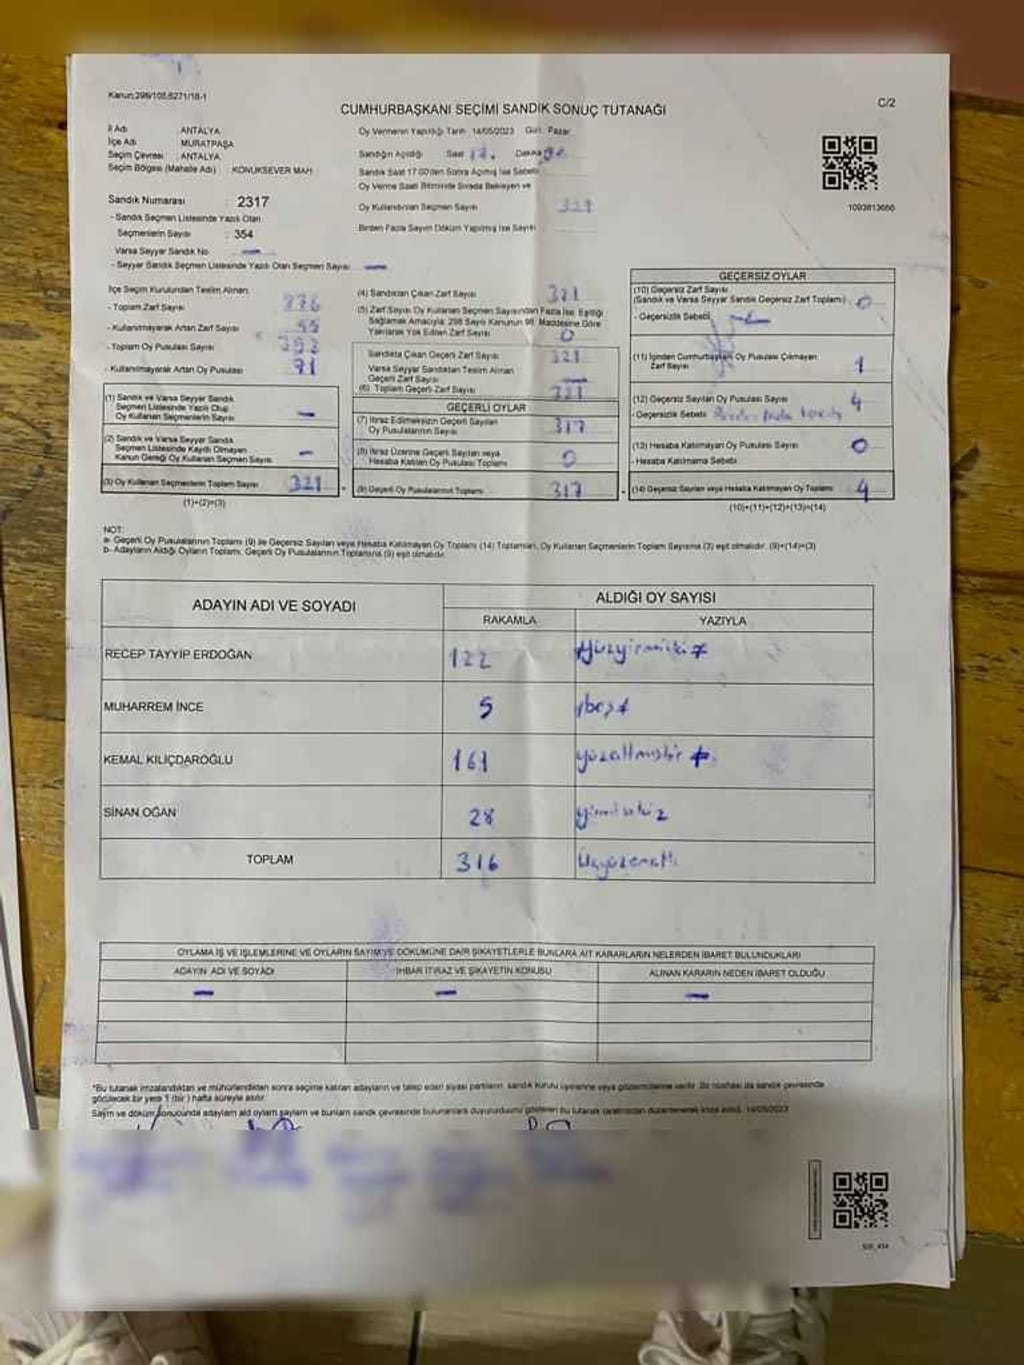 Kanun:298/105,6271/18-1
C/2
CUMHURBAŞKANI SEÇİMİ SANDIK SONUÇ TUTANAĞI
İl Adı : ANTALYA
İlçe Adı : MURATPAŞA
Seçim Çevresi : ANTALYA
Seçim Bölgesi (Mahalle Adı) : KONUKSEVER MAH
Sandık Numarası : 2317
- Sandık Seçmen Listesinde Yazılı Olan
Seçmenlerin Sayısı : 354
Varsa Seyyar Sandık No —
- Seyyar Sandık Seçmen Listesinde Yazılı Olan Seçmen Sayısı —
Oy Vermenin Yapıldığı Tarih 14/05/2023 Gün: Pazar
Sandığın Açıldığı Saat 17. Dakika
Sandık Saat 17.00'den Sonra Açılmış İse Sebebi
Oy Verme Saati Bitiminde Sırada Bekleyen ve
Oy Kullandırılan Seçmen Sayısı 321
Birden Fazla Sayım Döküm Yapılmış İse Sayısı
1093813666
İlçe Seçim Kurulundan Teslim Alınan:
- Toplam Zarf Sayısı 376
- Kullanılmayarak Artan Zarf Sayısı 55
- Toplam Oy Pusulası Sayısı 392
- Kullanılmayarak Artan Oy Pusulası 71
(1) Sandık ve Varsa Seyyar Sandık
Seçmen Listesinde Yazılı Olup
Oy Kullanan Seçmenlerin Sayısı —
(2) Sandık ve Varsa Seyyar Sandık
Seçmen Listesinde Kayıtlı Olmayan
Kanun Gereği Oy Kullanan Seçmen Sayısı —
(3) Oy Kullanan Seçmenlerin Toplam Sayısı 321
(1)+(2)=(3)
(4) Sandıktan Çıkan Zarf Sayısı 321
(5) Zarf Sayısı Oy Kullanan Seçmen Sayısından Fazla İse, Eşitliği
Sağlamak Amacıyla; 298 Sayılı Kanunun 98. Maddesine Göre
Yakılarak Yok Edilen Zarf Sayısı 0
Sandıkta Çıkan Geçerli Zarf Sayısı 321
Varsa Seyyar Sandıktan Teslim Alınan
Geçerli Zarf Sayısı —
(6) Toplam Geçerli Zarf Sayısı 321
GEÇERLİ OYLAR
(7) İtiraz Edilmeksizin Geçerli Sayılan
Oy Pusulalarının Sayısı 317
(8) İtiraz Üzerine Geçerli Sayılan veya
Hesaba Katılan Oy Pusulası Toplamı 0
(9) Geçerli Oy Pusulalarının Toplamı 317
GEÇERSİZ OYLAR
(10) Geçersiz Zarf Sayısı
(Sandık ve Varsa Seyyar Sandık Geçersiz Zarf Toplamı) 0
- Geçersizlik Sebebi
(11) İçinden Cumhurbaşkanı Oy Pusulası Çıkmayan
Zarf Sayısı 1
(12) Geçersiz Sayılan Oy Pusulası Sayısı 4
- Geçersizlik Sebebi
(13) Hesaba Katılmayan Oy Pusulası Sayısı 0
- Hesaba Katılmama Sebebi
(14) Geçersiz Sayılan veya Hesaba Katılmayan Oy Toplamı 4
(10)+(11)+(12)+(13)=(14)
NOT:
a- Geçerli Oy Pusulalarının Toplamı (9) ile Geçersiz Sayılan veya Hesaba Katılmayan Oy Toplamı (14) Toplamları, Oy Kullanan Seçmenlerin Toplam Sayısına (3) eşit olmalıdır. (9)+(14)=(3)
b- Adayların Aldığı Oyların Toplamı, Geçerli Oy Pusulalarının Toplamına (9) eşit olmalıdır.
ADAYIN ADI VE SOYADI
ALDIĞI OY SAYISI
RAKAMLA YAZIYLA
RECEP TAYYİP ERDOĞAN 122 yüzyirmiiki
MUHARREM İNCE 5 beş
KEMAL KILIÇDAROĞLU 161 yüzaltmışbir
SİNAN OĞAN 28 yirmisekiz
TOPLAM 316 üçyüzonaltı
OYLAMA İŞ VE İŞLEMLERİNE VE OYLARIN SAYIM VE DÖKÜMÜNE DAİR ŞİKAYETLERLE BUNLARA AİT KARARLARIN NELERDEN İBARET BULUNDUKLARI
ADAYIN ADI VE SOYADI İHBAR İTİRAZ VE ŞİKAYETİN KONUSU ALINAN KARARIN NEDEN İBARET OLDUĞU
— — —
*Bu tutanak imzalandıktan ve mühürlendikten sonra seçime katılan adayların ve talep eden siyasi partilerin sandık kurulu üyelerine veya gözlemcilerine verilir. Bir nüshası da sandık çevresinde
görülecek bir yere 1 (bir) hafta süreyle asılır.
Sayım ve döküm sonucunda adayların aldığı oyların sayılarını ve bunların sandık çevresinde bulunanlara duyurulduğunu gösteren bu tutanak tarafımızdan düzenlenerek imza edildi. 14/05/2023